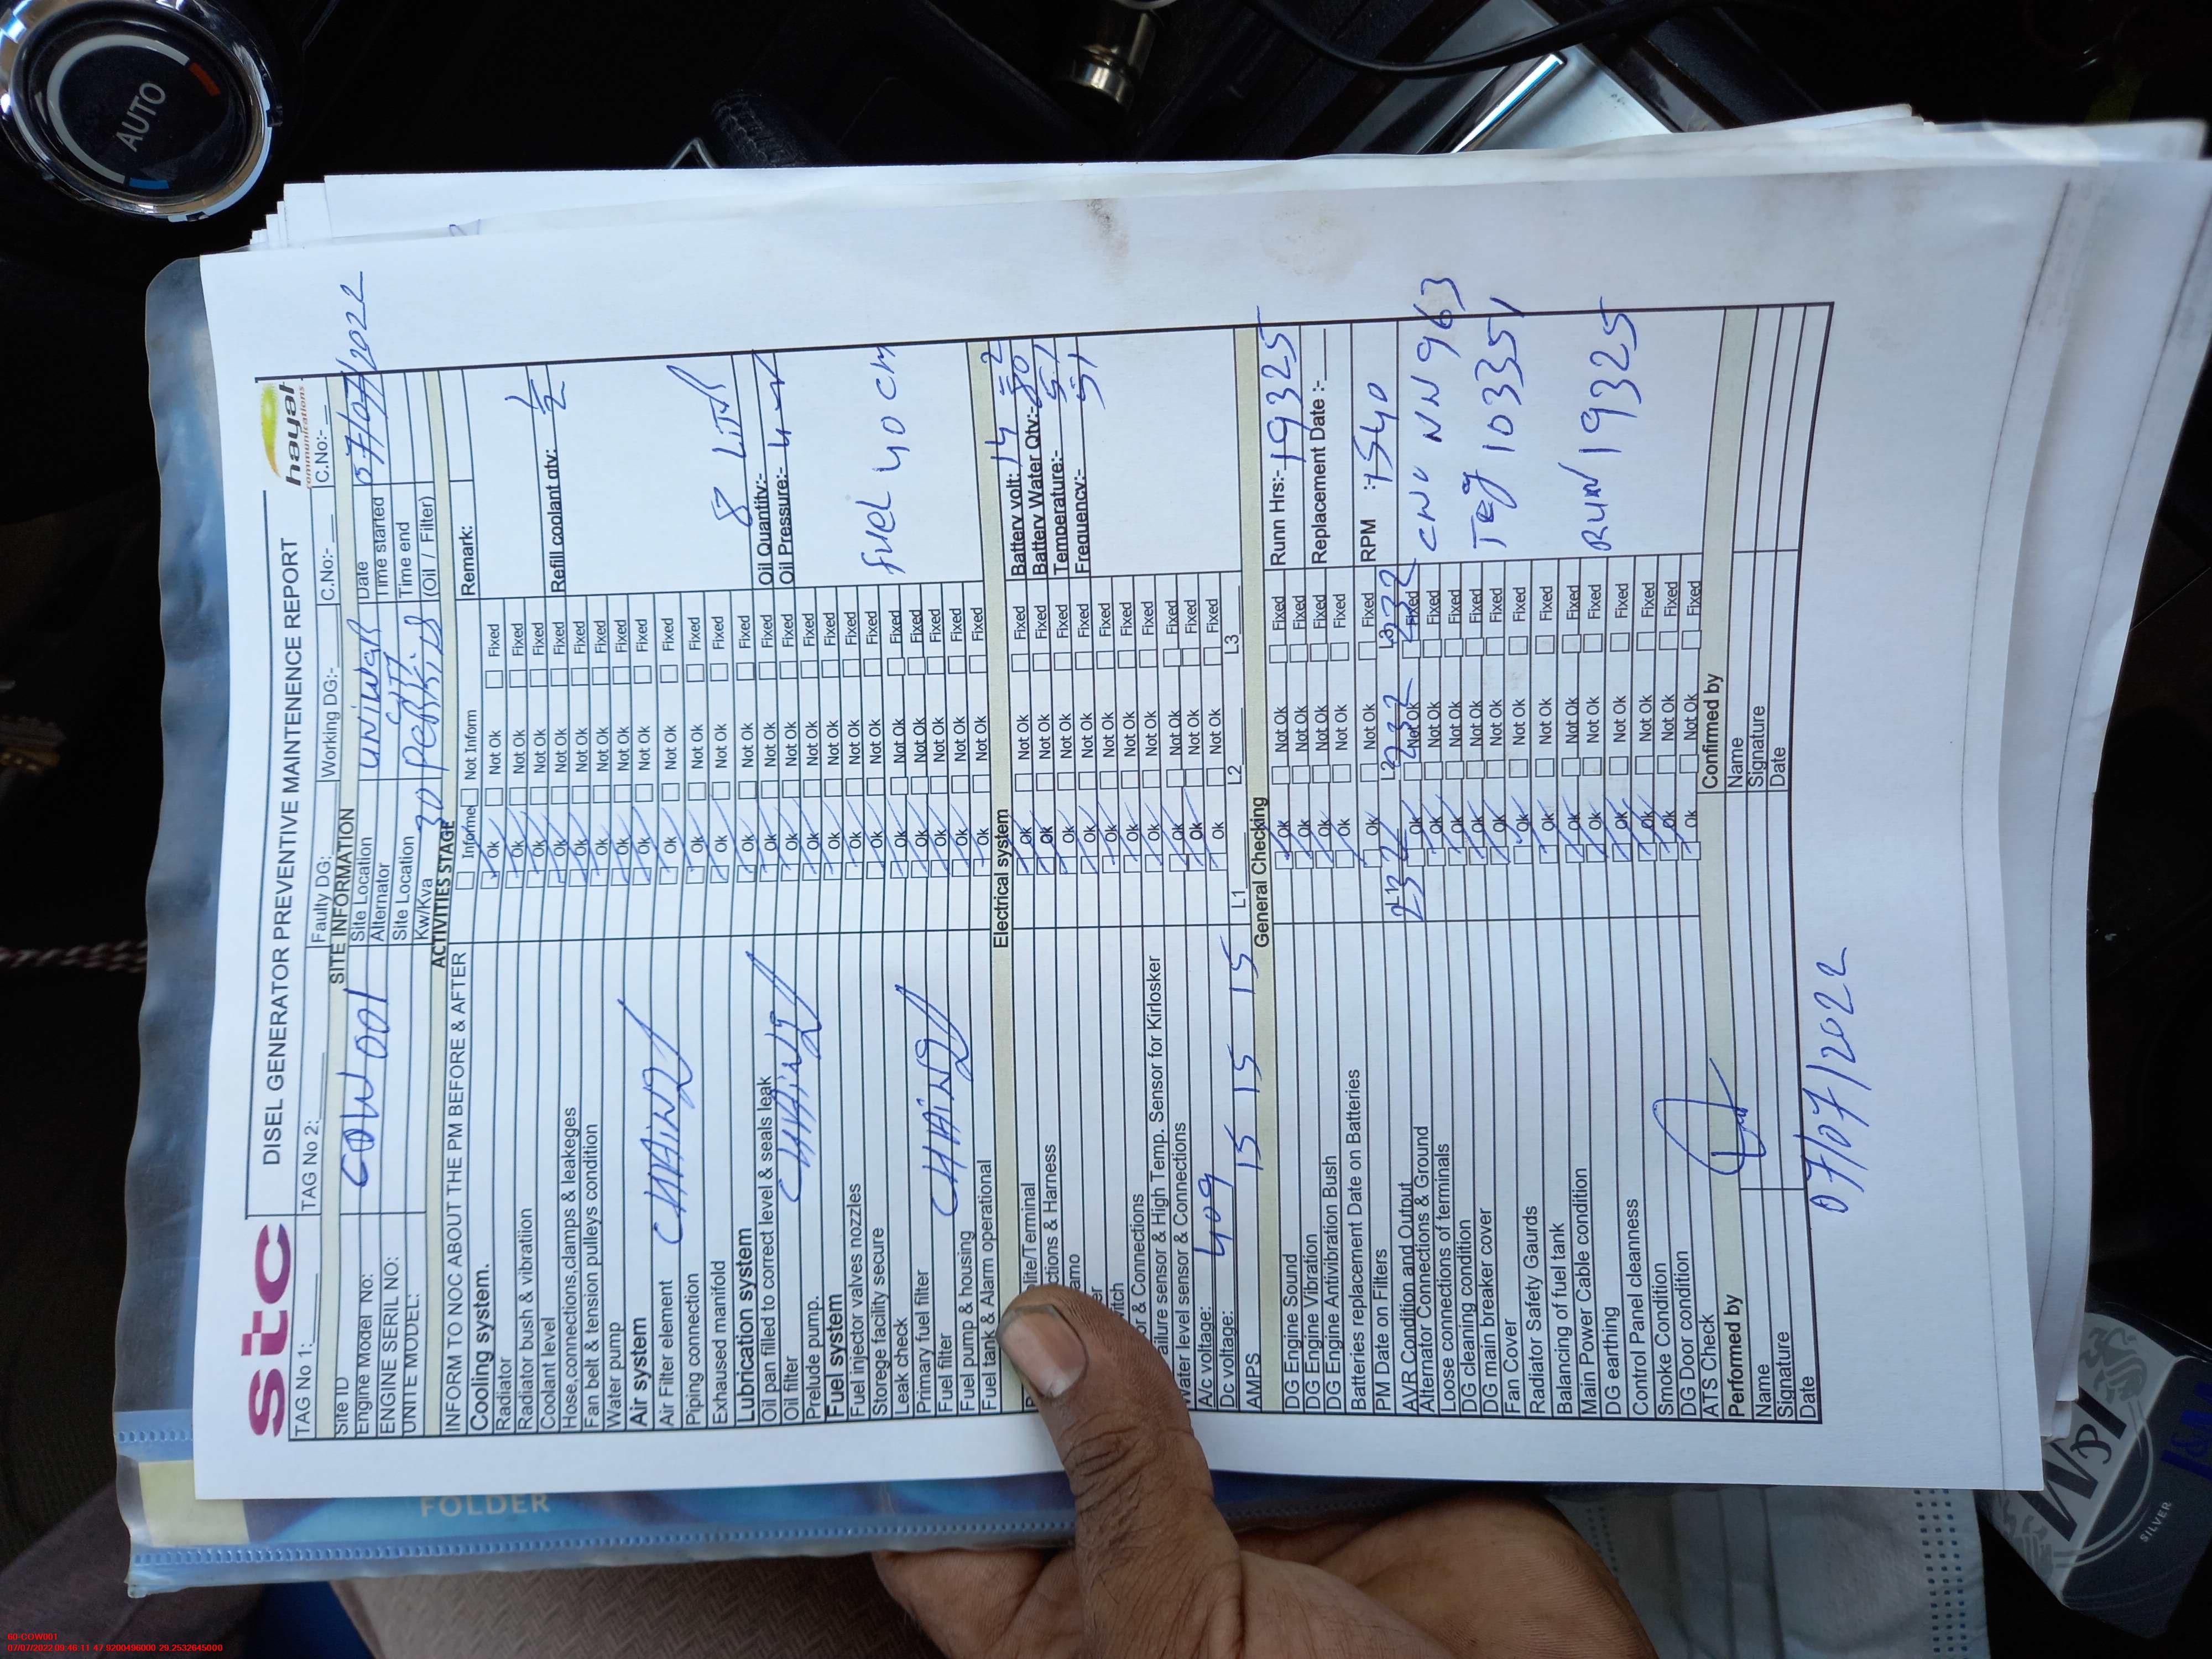 stc
DISEL GENERATOR PREVENTIVE MAINTENENCE REPORT
hayat
communications
TAG No 1:
TAG No 2:
Faulty DG:
Working DG:-
C.No:-
C.No:-
SITE INFORMATION
Site ID COW 001 Site Location UNIWAR Date 07/07/2022
Engine Model No: Alternator CITY Time started
ENGINE SERIL NO: Site Location Perkins Time end
UNITE MODEL: Kw/Kva 30 (Oil / Filter)
ACTIVITIES STAGE
INFORM TO NOC ABOUT THE PM BEFORE & AFTER Informe Not Inform Remark:
Cooling system. Ok Not Ok Fixed
Radiator Ok Not Ok Fixed
Radiator bush & vibratiion Ok Not Ok Fixed
Coolant level Ok Not Ok Fixed Refill coolant qty: 1/2
Hose,connections,clamps & leakeges Ok Not Ok Fixed
Fan belt & tension pulleys condition Ok Not Ok Fixed
Water pump Ok Not Ok Fixed
Air system Ok Not Ok Fixed
Air Filter element CHAING Ok Not Ok Fixed
Piping connection Ok Not Ok Fixed
Exhaused manifold Ok Not Ok Fixed
Lubrication system Ok Not Ok Fixed 8 LiTR
Oil pan filled to correct level & seals leak Ok Not Ok Fixed Oil Quantity:-
Oil filter CHAING Ok Not Ok Fixed Oil Pressure:- 4
Prelude pump. Ok Not Ok Fixed
Fuel system Ok Not Ok Fixed
Fuel injector valves nozzles Ok Not Ok Fixed
Storege facility secure Ok Not Ok Fixed fuel 40 cm
Leak check Ok Not Ok Fixed
Primary fuel filter Ok Not Ok Fixed
Fuel filter CHAING Ok Not Ok Fixed
Fuel pump & housing Ok Not Ok Fixed
Fuel tank & Alarm operational
Electrical system
lite/Terminal Ok Not Ok Fixed Battery volt: 14 =2
ctions & Harness Ok Not Ok Fixed Battery Water Qty:- 80
amo Ok Not Ok Fixed Temperature:- 51
er Ok Not Ok Fixed Frequency:- 51
itch Ok Not Ok Fixed
or & Connections Ok Not Ok Fixed
ailure sensor & High Temp. Sensor for Kirlosker Ok Not Ok Fixed
Water level sensor & Connections Ok Not Ok Fixed
A/c voltage: 409 Ok Not Ok Fixed
Dc voltage: L1 L2 L3
AMPS 15 15 15 15
General Checking
DG Engine Sound Ok Not Ok Fixed Runn Hrs:- 19325
DG Engine Vibration Ok Not Ok Fixed
DG Engine Antivibration Bush Ok Not Ok Fixed Replacement Date :-
Batteries replacement Date on Batteries Ok Not Ok Fixed
PM Date on Filters Ok Not Ok Fixed RPM :- 1540
AVR Condition and Output L1 232 L2 232 L3 232
Alternator Connections & Ground Ok Not Ok Fixed CNO NN 963
Loose connections of terminals Ok Not Ok Fixed
DG cleaning condition Ok Not Ok Fixed
DG main breaker cover Ok Not Ok Fixed Teg 103351
Fan Cover Ok Not Ok Fixed
Radiator Safety Gaurds Ok Not Ok Fixed
Balancing of fuel tank Ok Not Ok Fixed
Main Power Cable condition Ok Not Ok Fixed RUN 19325
DG earthing Ok Not Ok Fixed
Control Panel cleanness Ok Not Ok Fixed
Smoke Condition Ok Not Ok Fixed
DG Door condition Ok Not Ok Fixed
ATS Check Ok Not Ok Fixed
Performed by Confirmed by
Name Name
Signature Signature
Date Date
07/07/2022
AUTO
FOLDER
SILVER
60-COW001
07/07/2022 09:46:11 47.9200496000 29.2532645000